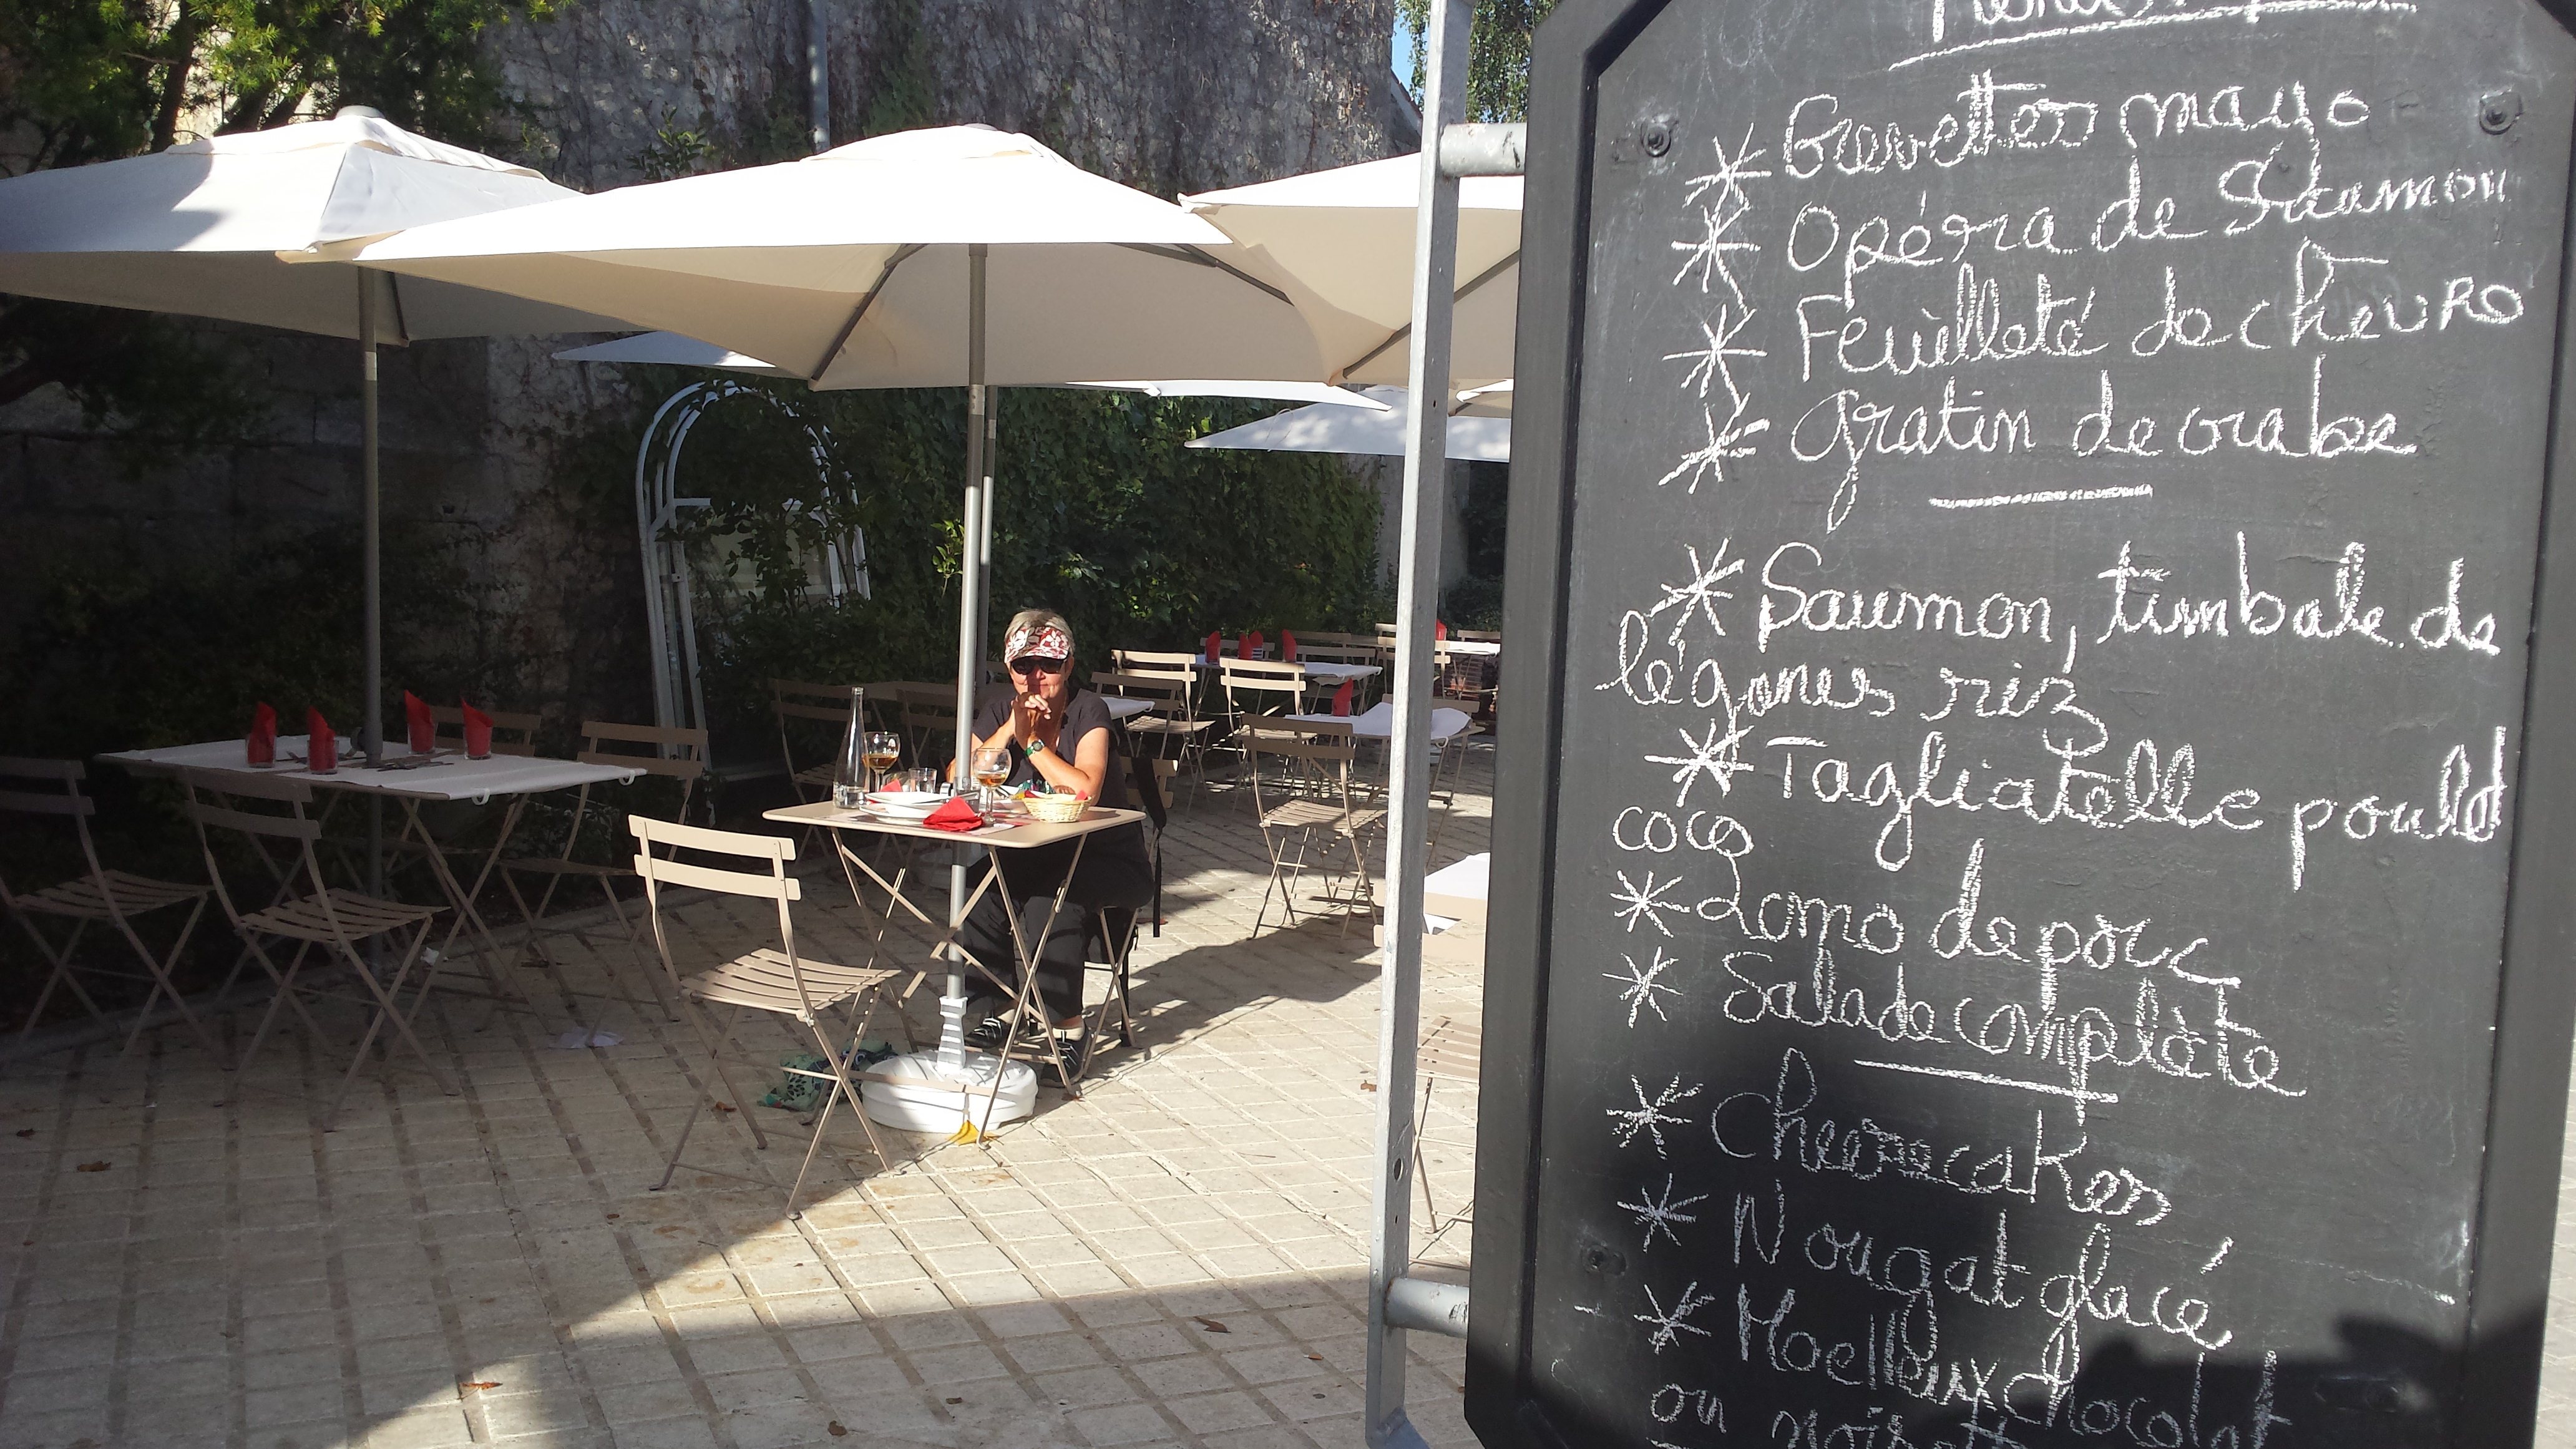 * Crevettes mayo
* Opéra de Saumon
* Feuilleté de chèvre
* gratin de crabe
* Saumon, timbale de
légumes riz
* Tagliatelle poulet
coco
* Lomo de porc
* Salade complète
* Cheesecakes
* Nougat glacé
* Moelleux chocolat
ou